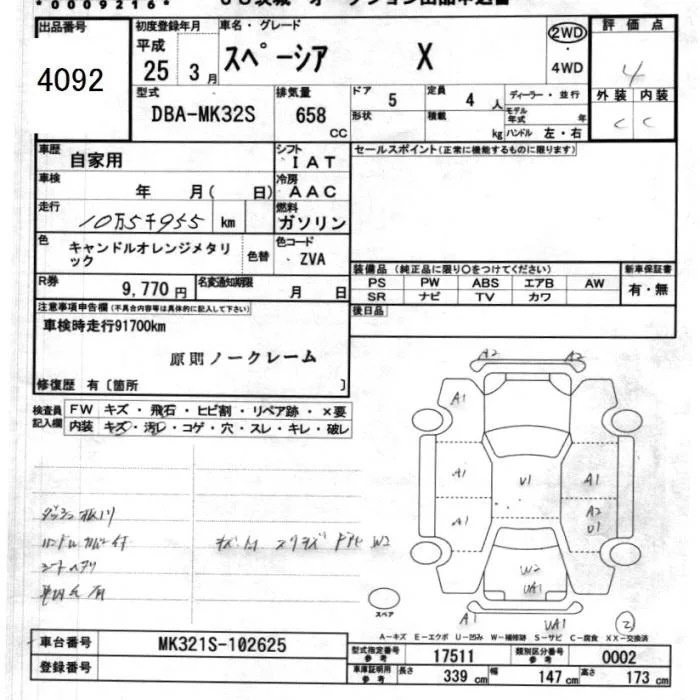 *0009216*
出品番号
4092
初度登録年月
平成
25 3月
車名・グレード
スペーシア X
2WD
・
4WD
評価点
4
型式
DBA-MK32S
排気量
658
CC
ドア
5
定員
4 人
ディーラー・並行
外装 内装
C C
形状
積載
kg
モデル年式 年
ハンドル 左・右
車歴
自家用
シフト
IAT
セールスポイント(正常に機能するものに限ります)
車検
年 月( 日)
冷房
AAC
走行
10万5千955 km
燃料
ガソリン
色
キャンドルオレンジメタリ
ック
色替
色コード
ZVA
装備品(純正品に限り○をつけてください)
新車保証書
R券
9,770円
名変通知期限
月 日
PS PW ABS エアB AW
SR ナビ TV カワ
有・無
注意事項申告欄(不具合内容等は具体的に記入して下さい)
後日品
車検時走行91700km
原則ノークレーム
修復歴 有〔箇所 〕
検査員
記入欄
FW キズ・飛石・ヒビ割・リペア跡・×要
内装 キズ・汚レ・コゲ・穴・スレ・キレ・破レ
A2 A2
A1
A1 U1 A1
A1 A2
U1
W2
UA1
A1 UA1 2
ハンドルカバー付
シートヘタリ
W2
スペア
A-キズ E-エクボ U-凹み W-補修跡 S-サビ C-腐食 XX-交換済
車台番号
MK321S-102625
型式指定番号
参考
17511
類別区分番号
参考
0002
登録番号
車庫証明用
参考
長さ 339 cm 幅 147 cm 高さ 173 cm